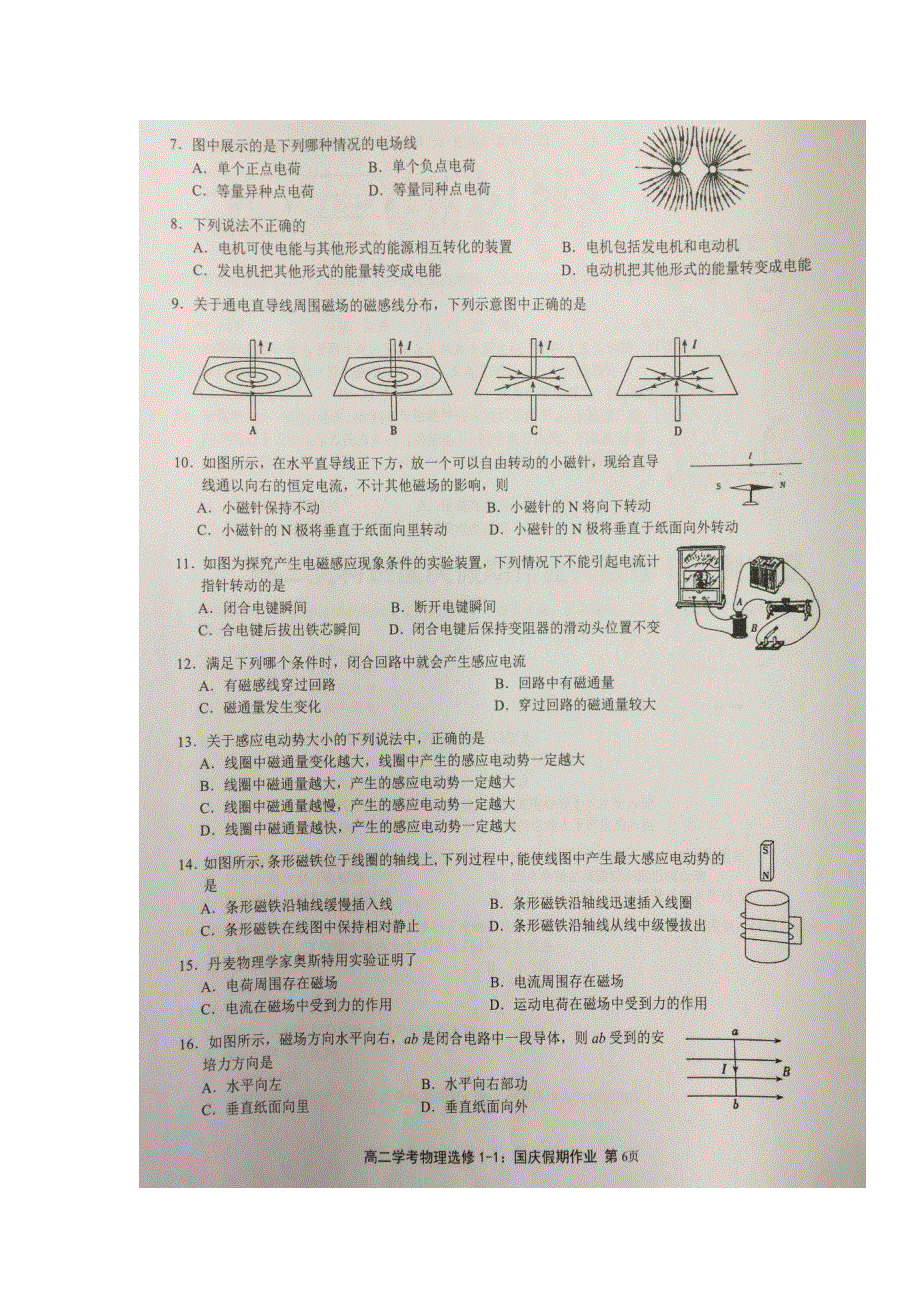 7．图中展示的是下列哪种情况的电场线
A．单个正点电荷 B．单个负点电荷
C．等量异种点电荷 D．等量同种点电荷
8．下列说法不正确的
A．电机可使电能与其他形式的能源相互转化的装置 B．电机包括发电机和电动机
C．发电机把其他形式的能量转变成电能 D．电动机把其他形式的能量转变成电能
9．关于通电直导线周围磁场的磁感线分布，下列示意图中正确的是
I I I I
A B C D
10．如图所示，在水平直导线正下方，放一个可以自由转动的小磁针，现给直导
I
线通以向右的恒定电流，不计其他磁场的影响，则
S N
A．小磁针保持不动 B．小磁针的 N 将向下转动
C．小磁针的 N 极将垂直于纸面向里转动 D．小磁针的 N 极将垂直于纸面向外转动
11．如图为探究产生电磁感应现象条件的实验装置，下列情况下不能引起电流计
指针转动的是
A．闭合电键瞬间 B．断开电键瞬间
A
C．合电键后拔出铁芯瞬间 D．闭合电键后保持变阻器的滑动头位置不变
B
12．满足下列哪个条件时，闭合回路中就会产生感应电流
A．有磁感线穿过回路 B．回路中有磁通量
C．磁通量发生变化 D．穿过回路的磁通量较大
13．关于感应电动势大小的下列说法中，正确的是
A．线圈中磁通量变化越大，线圈中产生的感应电动势一定越大
B．线圈中磁通量越大，产生的感应电动势一定越大
C．线圈中磁通量越慢，产生的感应电动势一定越大
D．线圈中磁通量越快，产生的感应电动势一定越大
14．如图所示,条形磁铁位于线圈的轴线上,下列过程中,能使线图中产生最大感应电动势的
是
S
N
A．条形磁铁沿轴线缓慢插入线 B．条形磁铁沿轴线迅速插入线圈
C．条形磁铁在线图中保持相对静止 D．条形磁铁沿轴线从线中级慢拔出
15．丹麦物理学家奥斯特用实验证明了
A．电荷周围存在磁场 B．电流周围存在磁场
C．电流在磁场中受到力的作用 D．运动电荷在磁场中受到力的作用
16．如图所示，磁场方向水平向右，ab 是闭合电路中一段导体，则 ab 受到的安
培力方向是
a
I B
b
A．水平向左 B．水平向右部功
C．垂直纸面向里 D．垂直纸面向外
高二学考物理选修 1-1：国庆假期作业 第 6页